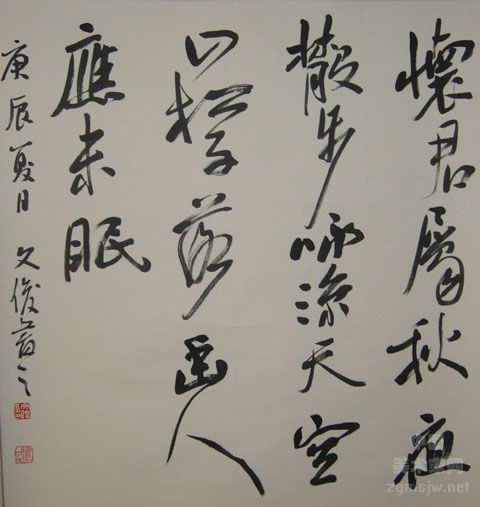 懷君屬秋夜
散步咏涼天空
山松子落幽人
應未眠
庚辰夏日 文俊書之
zgmsjw.net